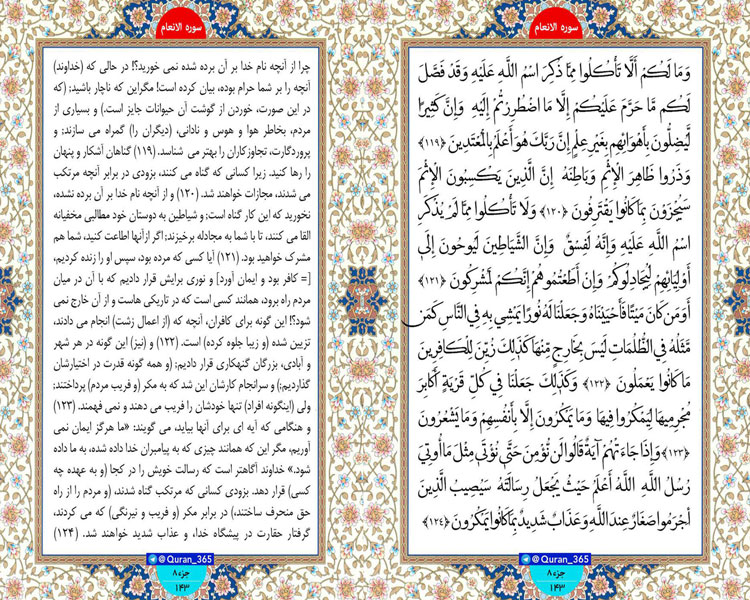 سوره الانعام
وَمَا لَكُمْ أَلَّا تَأْكُلُوا مِمَّا ذُكِرَ اسْمُ اللَّهِ عَلَيْهِ وَقَدْ فَصَّلَ
لَكُمْ مَّا حَرَّمَ عَلَيْكُمْ إِلَّا مَا اضْطُرِرْتُمْ إِلَيْهِ وَإِنَّ كَثِيرًا
لَّيُضِلُّونَ بِأَهْوَائِهِم بِغَيْرِ عِلْمٍ إِنَّ رَبَّكَ هُوَ أَعْلَمُ بِالْمُعْتَدِينَ ﴿۱۱۹﴾
وَذَرُوا ظَاهِرَ الْإِثْمِ وَبَاطِنَهُ إِنَّ الَّذِينَ يَكْسِبُونَ الْإِثْمَ
سَيُجْزَوْنَ بِمَا كَانُوا يَقْتَرِفُونَ ﴿۱۲۰﴾ وَلَا تَأْكُلُوا مِمَّا لَمْ يُذْكَرِ
اسْمُ اللَّهِ عَلَيْهِ وَإِنَّهُ لَفِسْقٌ وَإِنَّ الشَّيَاطِينَ لَيُوحُونَ إِلَى
أَوْلِيَائِهِمْ لِيُجَادِلُوكُمْ وَإِنْ أَطَعْتُمُوهُمْ إِنَّكُمْ لَمُشْرِكُونَ ﴿۱۲۱﴾
أَوَمَن كَانَ مَيْتًا فَأَحْيَيْنَاهُ وَجَعَلْنَا لَهُ نُورًا يَمْشِي بِهِ فِي النَّاسِ كَمَن
مَّثَلُهُ فِي الظُّلُمَاتِ لَيْسَ بِخَارِجٍ مِّنْهَا كَذَلِكَ زُيِّنَ لِلْكَافِرِينَ
مَا كَانُوا يَعْمَلُونَ ﴿۱۲۲﴾ وَكَذَلِكَ جَعَلْنَا فِي كُلِّ قَرْيَةٍ أَكَابِرَ
مُجْرِمِيهَا لِيَمْكُرُوا فِيهَا وَمَا يَمْكُرُونَ إِلَّا بِأَنفُسِهِمْ وَمَا يَشْعُرُونَ
﴿۱۲۳﴾ وَإِذَا جَاءَتْهُمْ آيَةٌ قَالُوا لَن نُّؤْمِنَ حَتَّى نُؤْتَى مِثْلَ مَا أُوتِيَ
رُسُلُ اللَّهِ اللَّهُ أَعْلَمُ حَيْثُ يَجْعَلُ رِسَالَتَهُ سَيُصِيبُ الَّذِينَ
أَجْرَمُوا صَغَارٌ عِندَ اللَّهِ وَعَذَابٌ شَدِيدٌ بِمَا كَانُوا يَمْكُرُونَ ﴿۱۲۴﴾
@Quran_365
جزء ۸
۱۴۳
سوره الانعام
چرا از آنچه نام خدا بر آن برده شده نمی خورید؟! در حالی که (خداوند)
آنچه را بر شما حرام بوده، بیان کرده است! مگراین که ناچار باشید؛ (که
در این صورت، خوردن از گوشت آن حیوانات جایز است.) و بسیاری از
مردم، بخاطر هوا و هوس و نادانی، (دیگران را) گمراه می سازند؛ و
پروردگارت، تجاوزکاران را بهتر می شناسد. (۱۱۹) گناهان آشکار و پنهان
را رها کنید. زیرا کسانی که گناه می کنند، بزودی در برابر آنچه مرتکب
می شدند، مجازات خواهند شد. (۱۲۰) و از آنچه نام خدا بر آن برده نشده،
نخورید که این کار گناه است؛ و شیاطین به دوستان خود مطالبی مخفیانه
القا می کنند، تا با شما به مجادله برخیزند؛ اگر ازآنها اطاعت کنید، شما هم
مشرک خواهید بود. (۱۲۱) آیا کسی که مرده بود، سپس او را زنده کردیم،
[= کافر بود و ایمان آورد] و نوری برایش قرار دادیم که با آن در میان
مردم راه برود، همانند کسی است که در تاریکی هاست و از آن خارج نمی
شود؟! این گونه برای کافران، آنچه که (از اعمال زشت) انجام می دادند،
تزیین شده (و زیبا جلوه کرده) است. (۱۲۲) و (نیز) این گونه در هر شهر
و آبادی، بزرگان گنهکاری قرار دادیم؛ (و همه گونه قدرت در اختیارشان
گذاردیم؛) و سرانجام کارشان این شد که به مکر (و فریب مردم) پرداختند؛
ولی (اینگونه افراد) تنها خودشان را فریب می دهند و نمی فهمند. (۱۲۳)
و هنگامی که آیه ای برای آنها بیاید، می گویند: «ما هرگز ایمان نمی
آوریم، مگر این که همانند چیزی که به پیامبران خدا داده شده، به ما داده
شود.» خداوند آگاهتر است که رسالت خویش را در کجا (و به عهده چه
کسی) قرار دهد. بزودی کسانی که مرتکب گناه شدند، (و مردم را از راه
حق منحرف ساختند،) در برابر مکر (و فریب و نیرنگی) که می کردند،
گرفتار حقارت در پیشگاه خدا، و عذاب شدید خواهند شد. (۱۲۴)
@Quran_365
جزء ۸
۱۴۳